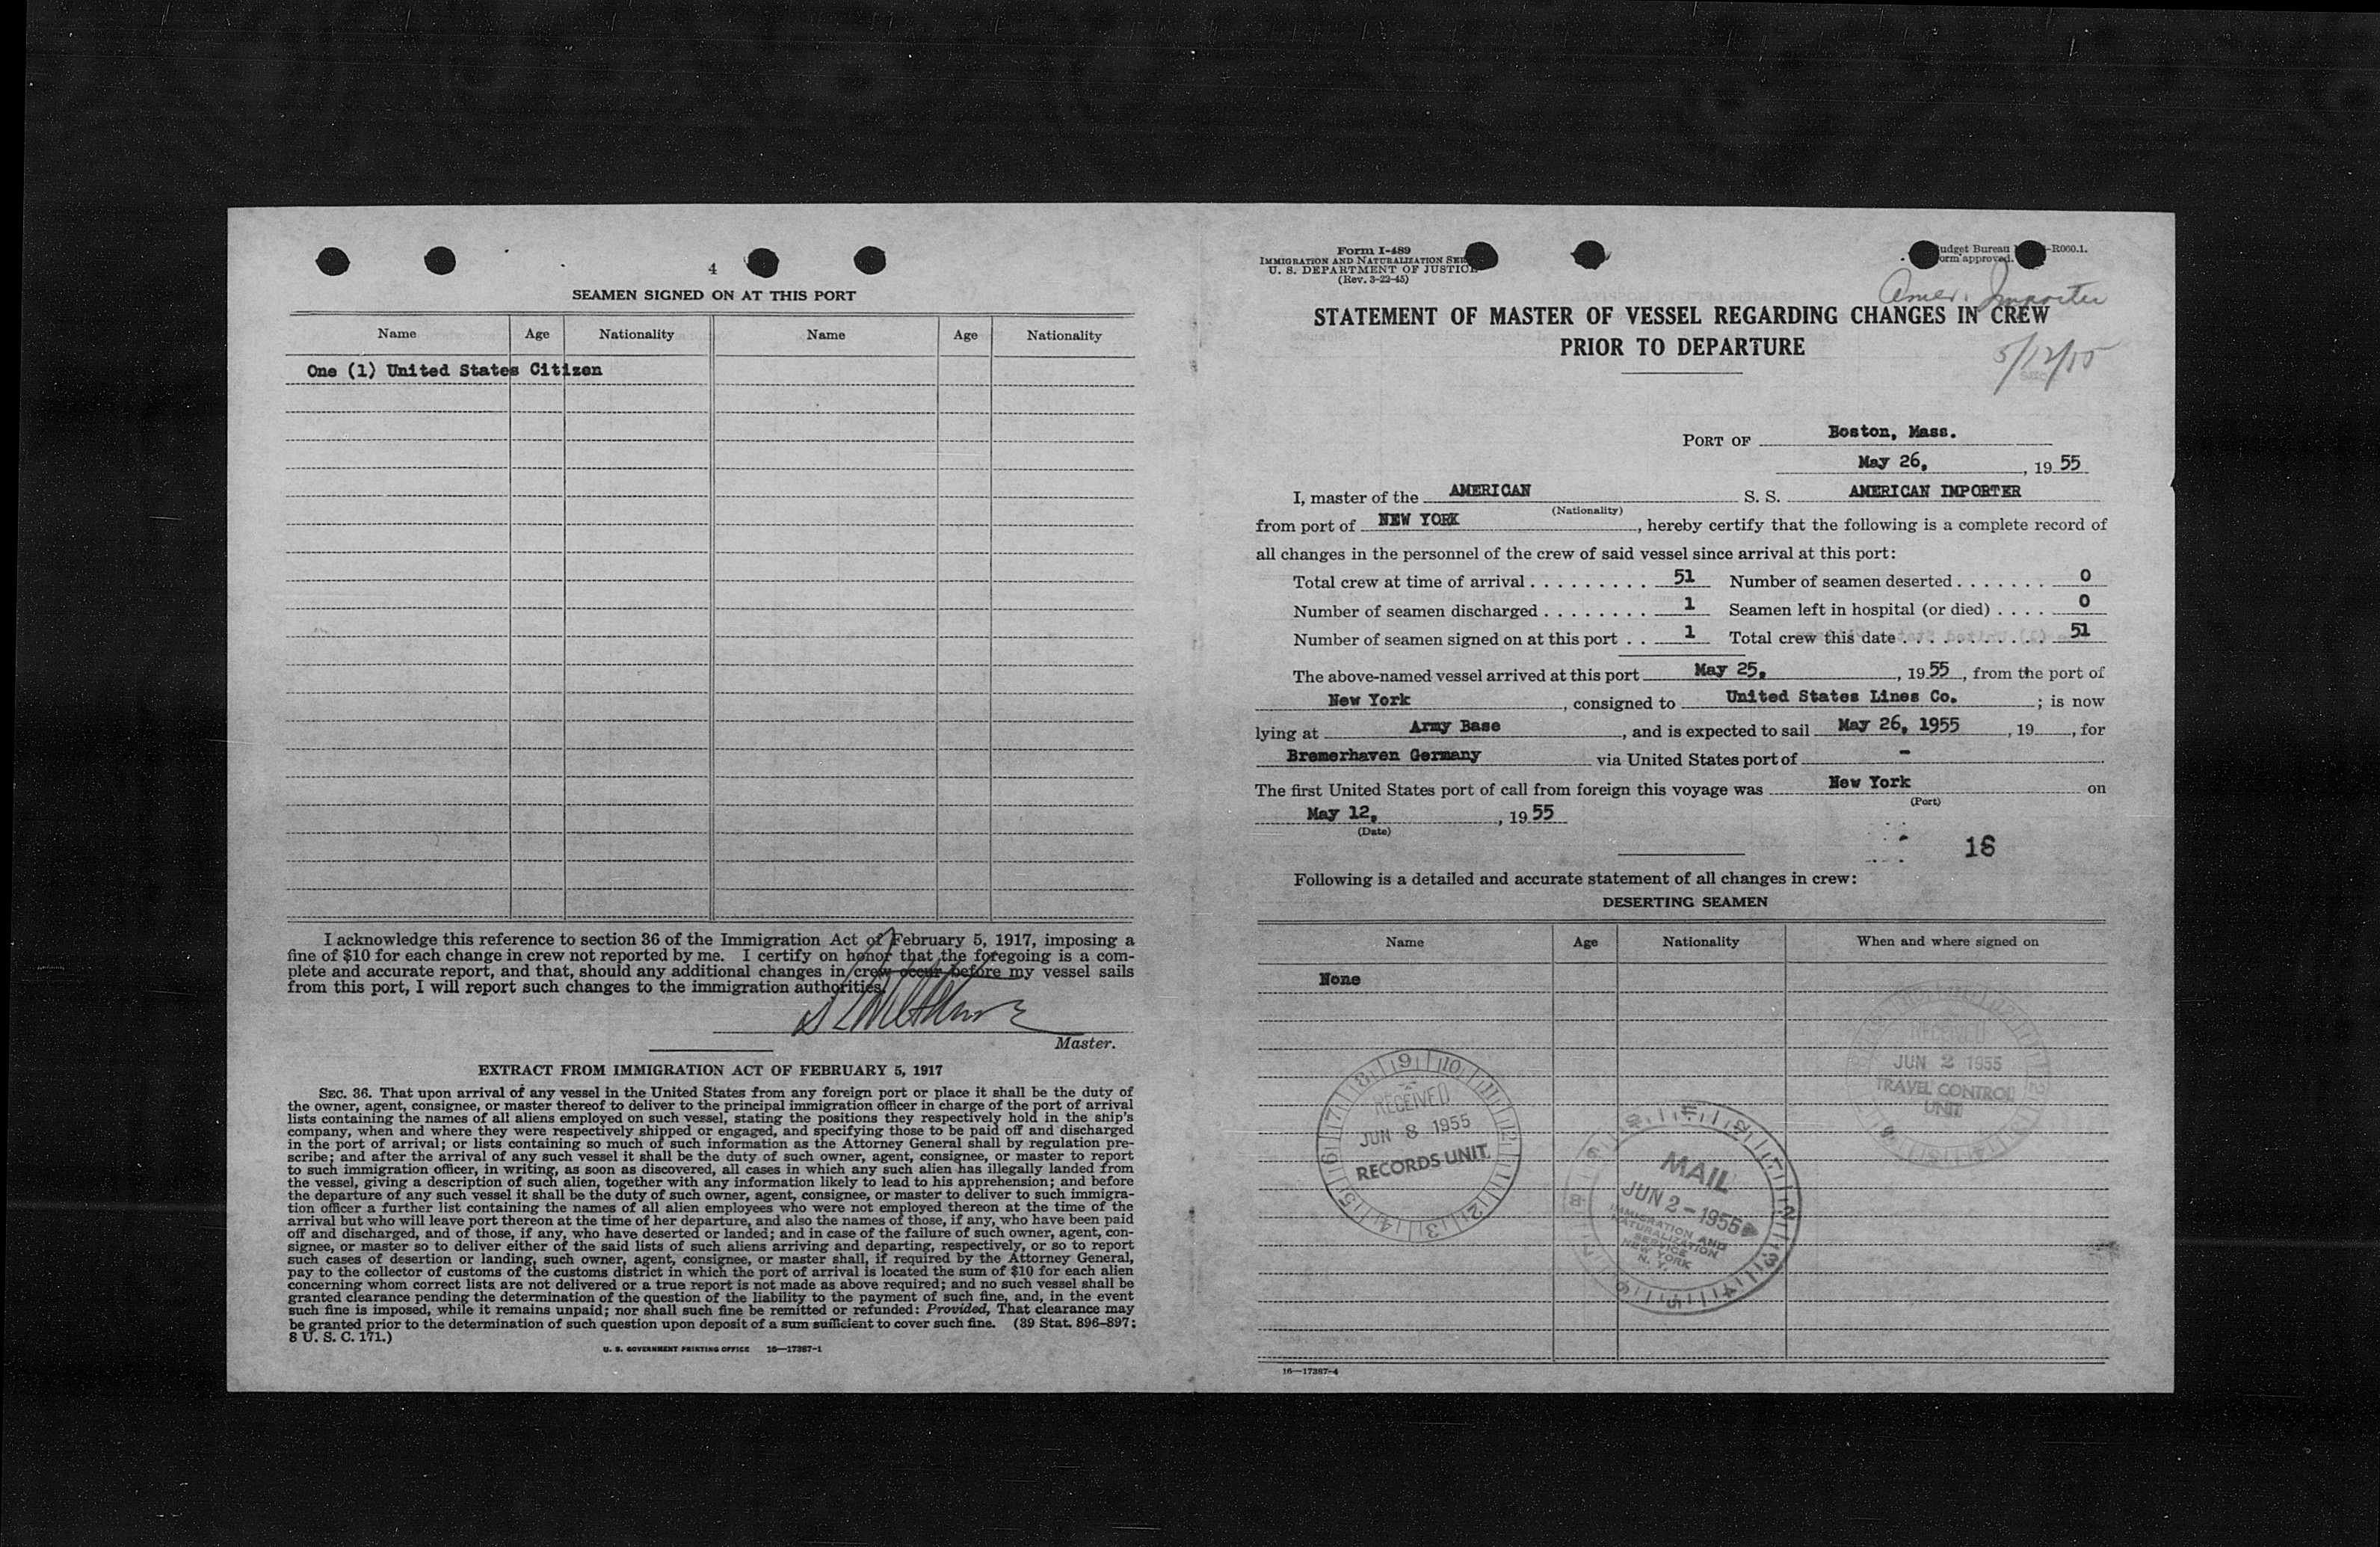 4
SEAMEN SIGNED ON AT THIS PORT
Name Age Nationality Name Age Nationality
One (1) United States Citizen
I acknowledge this reference to section 36 of the Immigration Act of February 5, 1917, imposing a
fine of $10 for each change in crew not reported by me. I certify on honor that the foregoing is a com-
plete and accurate report, and that, should any additional changes in crew occur before my vessel sails
from this port, I will report such changes to the immigration authorities.
Master.
EXTRACT FROM IMMIGRATION ACT OF FEBRUARY 5, 1917
SEC. 36. That upon arrival of any vessel in the United States from any foreign port or place it shall be the duty of
the owner, agent, consignee, or master thereof to deliver to the principal immigration officer in charge of the port of arrival
lists containing the names of all aliens employed on such vessel, stating the positions they respectively hold in the ship's
company, when and where they were respectively shipped or engaged, and specifying those to be paid off and discharged
in the port of arrival; or lists containing so much of such information as the Attorney General shall by regulation pre-
scribe; and after the arrival of any such vessel it shall be the duty of such owner, agent, consignee, or master to report
to such immigration officer, in writing, as soon as discovered, all cases in which any such alien has illegally landed from
the vessel, giving a description of such alien, together with any information likely to lead to his apprehension; and before
the departure of any such vessel it shall be the duty of such owner, agent, consignee, or master to deliver to such immigra-
tion officer a further list containing the names of all alien employees who were not employed thereon at the time of the
arrival but who will leave port thereon at the time of her departure, and also the names of those, if any, who have been paid
off and discharged, and of those, if any, who have deserted or landed; and in case of the failure of such owner, agent, con-
signee, or master so to deliver either of the said lists of such aliens arriving and departing, respectively, or so to report
such cases of desertion or landing, such owner, agent, consignee, or master shall, if required by the Attorney General,
pay to the collector of customs of the customs district in which the port of arrival is located the sum of $10 for each alien
concerning whom correct lists are not delivered or a true report is not made as above required; and no such vessel shall be
granted clearance pending the determination of the question of the liability to the payment of such fine, and, in the event
such fine is imposed, while it remains unpaid; nor shall such fine be remitted or refunded: Provided, That clearance may
be granted prior to the determination of such question upon deposit of a sum sufficient to cover such fine. (39 Stat. 896–897;
8 U. S. C. 171.)
U. S. GOVERNMENT PRINTING OFFICE 16—17387-1
Form I-489
IMMIGRATION AND NATURALIZATION
U. S. DEPARTMENT OF JUSTICE
(Rev. 3-22-45)
Budget Bureau -R060.1.
Form approved.
Amer. Importer
STATEMENT OF MASTER OF VESSEL REGARDING CHANGES IN CREW
PRIOR TO DEPARTURE
5/12/55
PORT OF Boston, Mass.
May 26, , 19 55
I, master of the AMERICAN S. S. AMERICAN IMPORTER
(Nationality)
from port of NEW YORK , hereby certify that the following is a complete record of
all changes in the personnel of the crew of said vessel since arrival at this port:
Total crew at time of arrival . . . . . . . . . 51 Number of seamen deserted . . . . . . . 0
Number of seamen discharged . . . . . . . . 1 Seamen left in hospital (or died) . . . . 0
Number of seamen signed on at this port . . 1 Total crew this date . . . . . . . . . . . 51
The above-named vessel arrived at this port May 25, , 19 55 , from the port of
New York , consigned to United States Lines Co. ; is now
lying at Army Base , and is expected to sail May 26, 1955 , 19 , for
Bremerhaven Germany via United States port of -
The first United States port of call from foreign this voyage was New York on
(Port)
May 12, , 19 55
(Date)
16
Following is a detailed and accurate statement of all changes in crew:
DESERTING SEAMEN
Name Age Nationality When and where signed on
None
RECEIVED
JUN 2 1955
TRAVEL CONTROL
UNIT
RECEIVED
JUN 8 1955
RECORDS UNIT
MAIL
JUN 2 - 1955
IMMIGRATION AND
NATURALIZATION
SERVICE
NEW YORK
N. Y.
16—17387-4